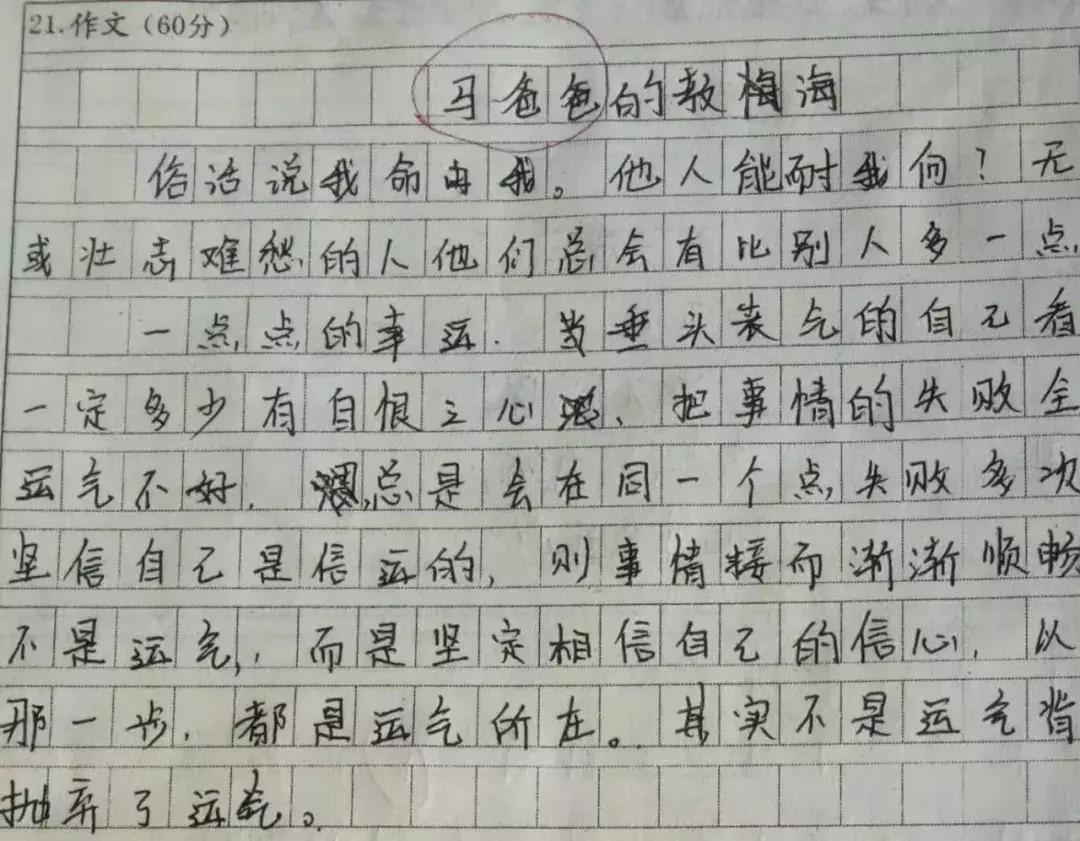 21.作文(60分)
马爸爸的教海
俗话说我命由我。他人能耐我何?无
或壮志难愁的人他们总会有比别人多一点
一点点的事运.当垂头丧气的自己看
一定多少有自恨之心、把事情的失败全
运气不好.总是会在同一个点失败多次
坚信自己是信运的,则事情接而渐渐顺畅
不是运气,而是坚定相信自己的信心,以
那一步,都是运气所在。其实不是运气背
抛弃了运气。